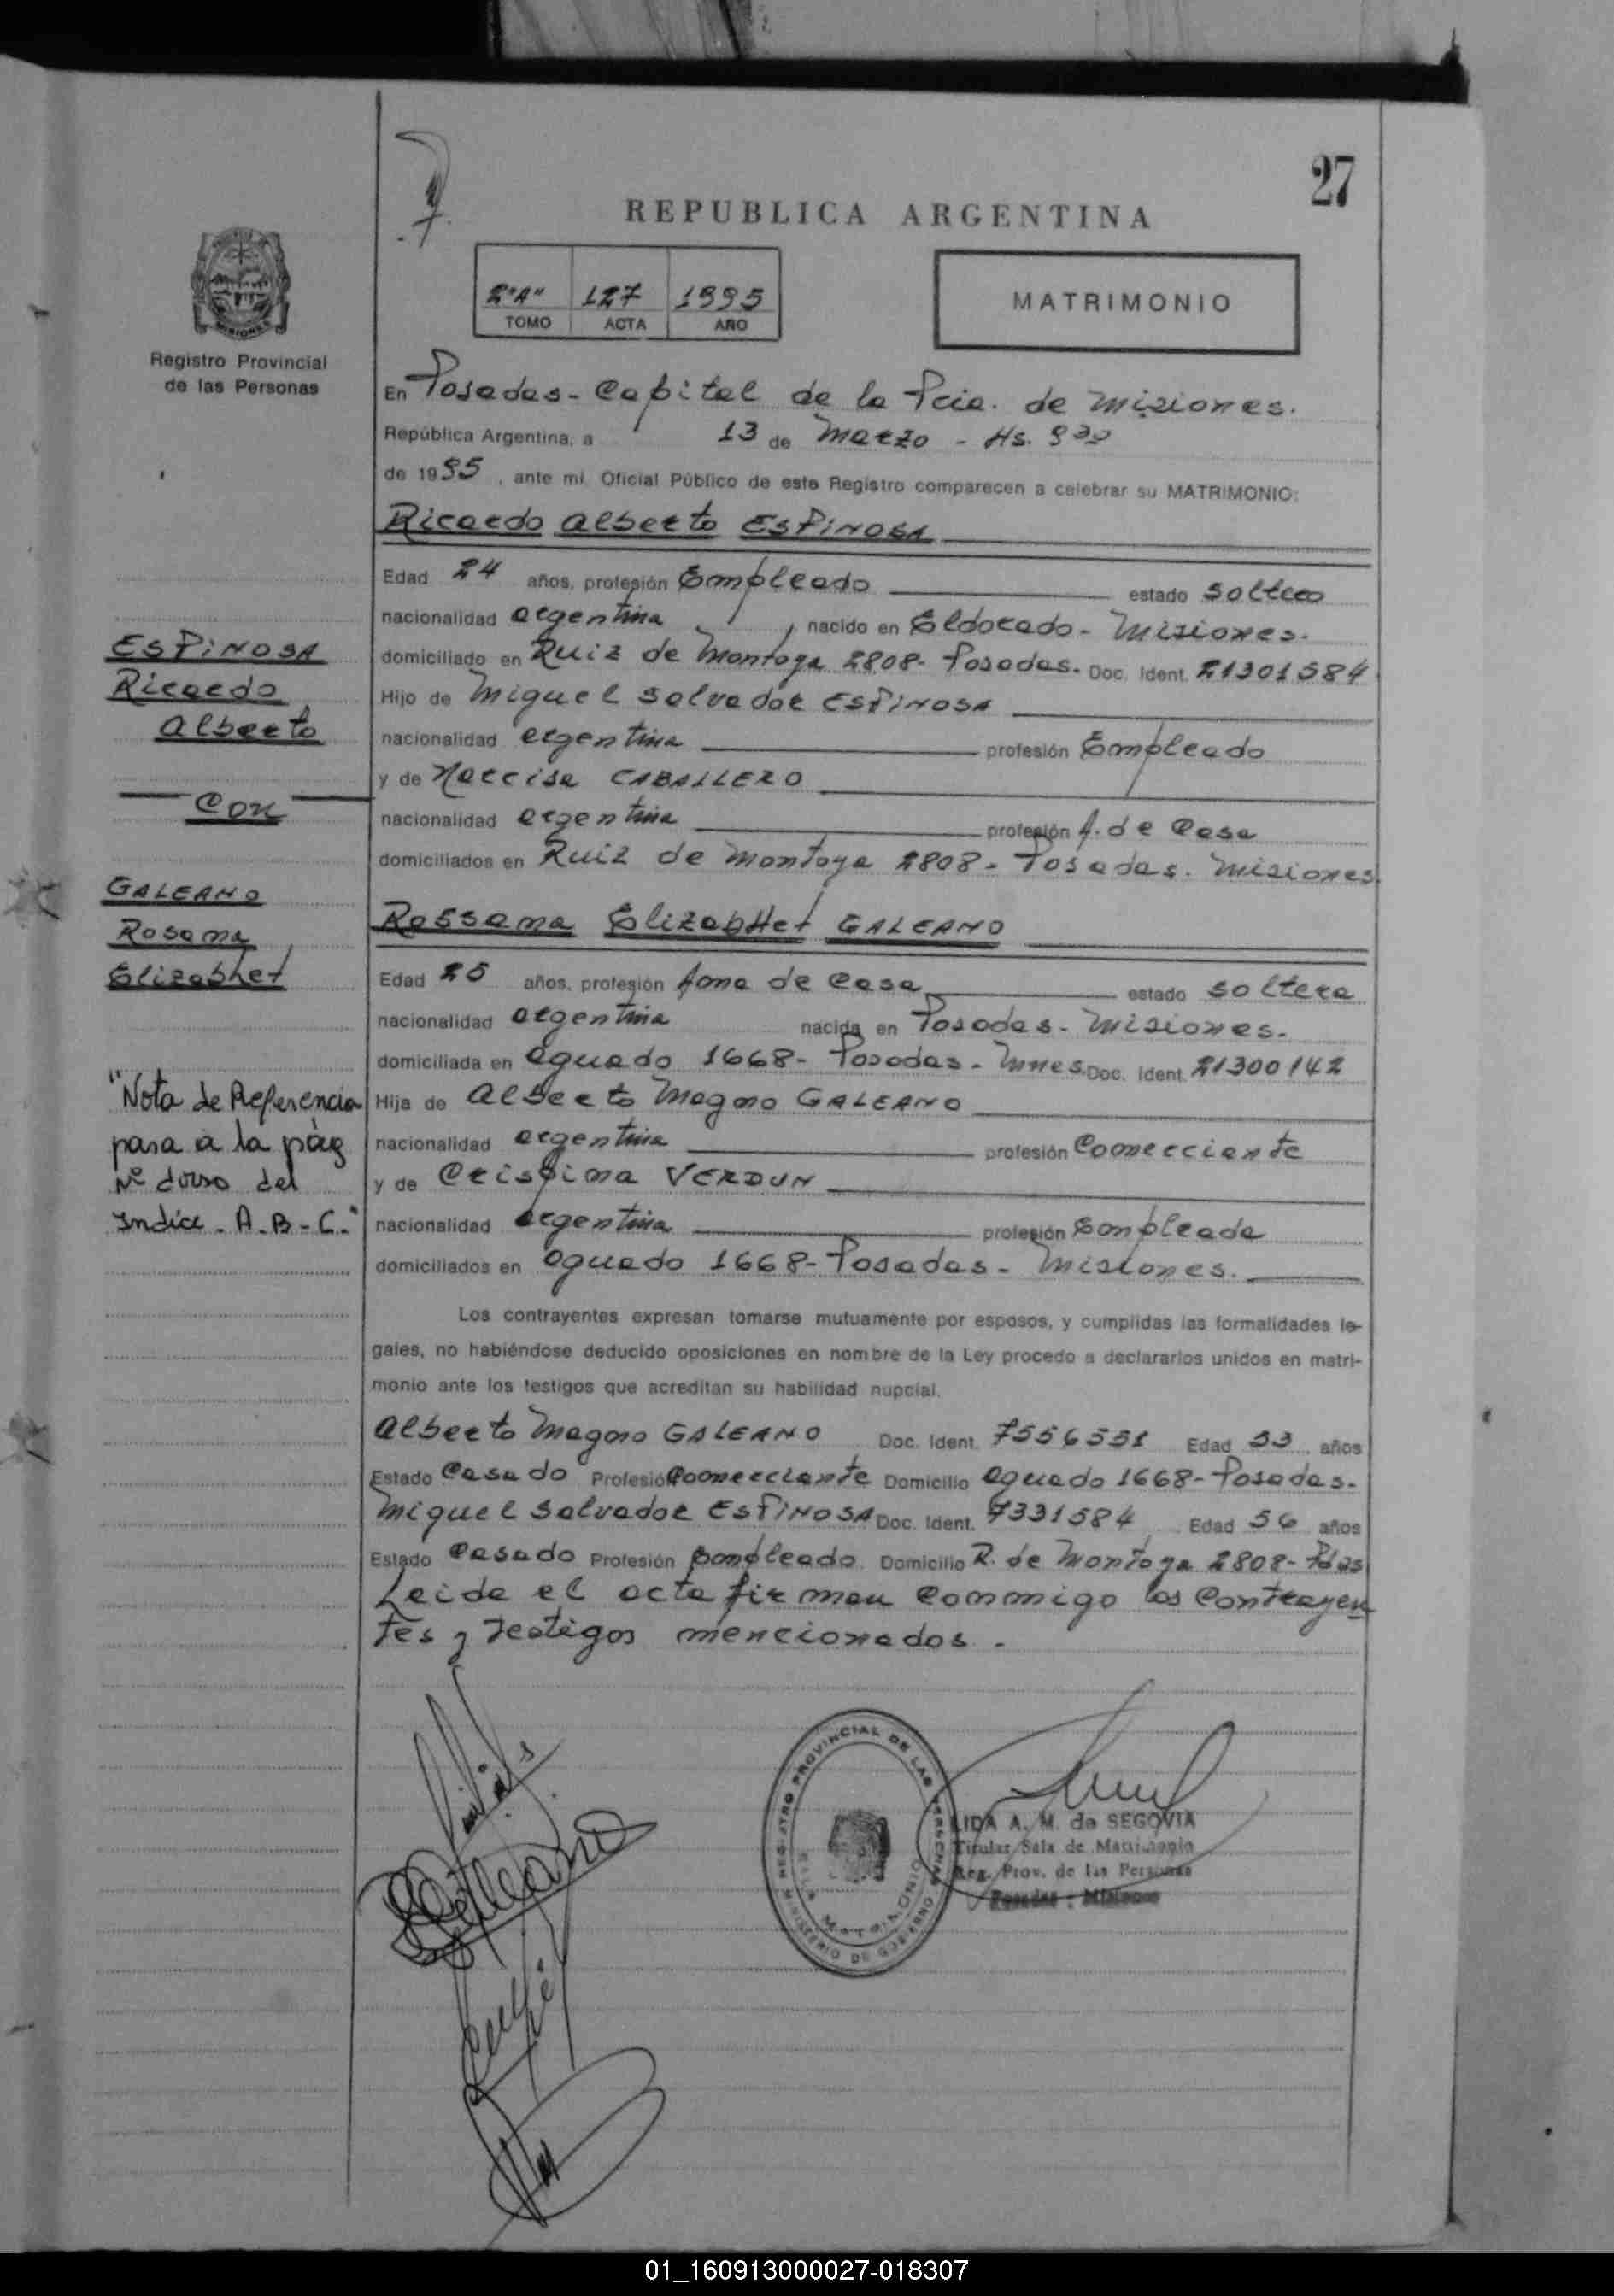 27
REPUBLICA ARGENTINA
2"A" 127 1995
TOMO ACTA AÑO
MATRIMONIO
Registro Provincial
de las Personas
En Posadas - Capital de la Pcia. de Misiones.
República Argentina, a 13 de Marzo - Hs. 9 30
de 1995, ante mi, Oficial Público de este Registro comparecen a celebrar su MATRIMONIO:
Ricardo Alberto ESPINOSA
Edad 24 años, profesión Empleado estado soltero
nacionalidad argentina nacido en Eldorado - Misiones.
domiciliado en Ruiz de Montoya 2808 - Posadas. Doc. Ident. 21301584
Hijo de Miguel Salvador ESPINOSA
nacionalidad argentina profesión Empleado
y de Narcisa CABALLERO
nacionalidad argentina profesión A. de Casa
domiciliados en Ruiz de Montoya 2808 - Posadas. Misiones.
Rossana Elizabhet GALEANO
Edad 25 años, profesión Ama de Casa estado soltera
nacionalidad argentina nacida en Posadas - Misiones.
domiciliada en Aguado 1668 - Posadas - Mnes. Doc. Ident. 21300142
Hija de Alberto Magno GALEANO
nacionalidad argentina profesión Comerciante
y de Crispina VERDUN
nacionalidad argentina profesión Empleada
domiciliados en Aguado 1668 - Posadas - Misiones.
Los contrayentes expresan tomarse mutuamente por esposos, y cumplidas las formalidades le-
gales, no habiéndose deducido oposiciones en nombre de la Ley procedo a declararlos unidos en matri-
monio ante los testigos que acreditan su habilidad nupcial.
Alberto Magno GALEANO Doc. Ident. 7556551 Edad 53 años
Estado Casado Profesión Comerciante Domicilio Aguado 1668 - Posadas.
Miguel Salvador ESPINOSA Doc. Ident. 7331584 Edad 56 años
Estado Casado Profesión Empleado. Domicilio R. de Montoya 2808 - Pdas
Leida el acta firman conmigo los Contrayen
tes y testigos mencionados.
ESPINOSA
Ricardo
Alberto
Con
GALEANO
Rosana
Elizabhet
"Nota de Referencia
pasa a la pág
Nº dorso del
Indice - A - B - C."
REGISTRO PROVINCIAL DE LAS PERSONAS
MINISTERIO DE GOBIERNO
MATRIMONIO
LIDA A. M. de SEGOVIA
Titular Sala de Matrimonio
Reg. Prov. de las Personas
Posadas - Misiones
01_160913000027-018307